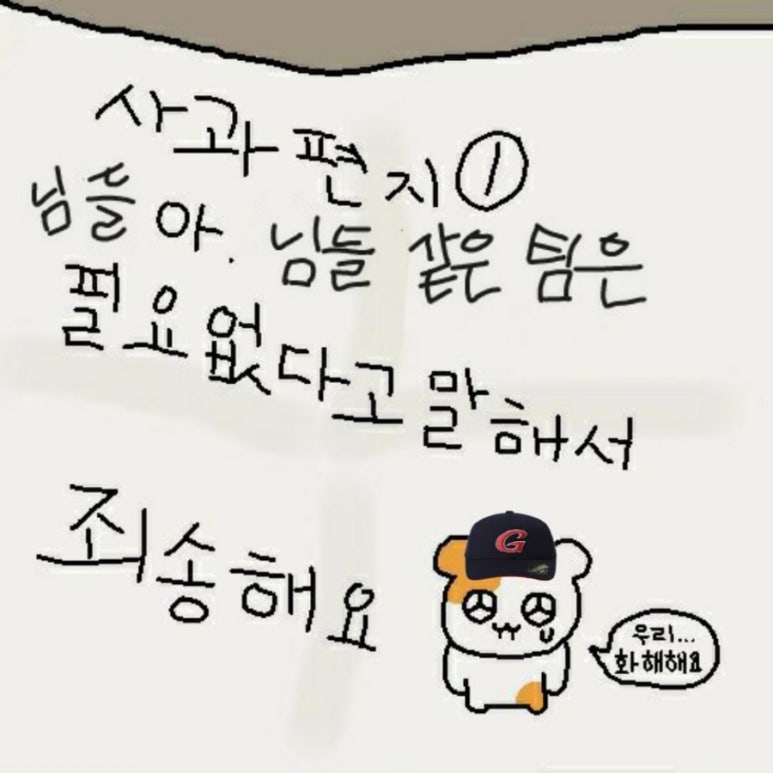 사과편지①
님들아. 님들 같은 팀은
필요없다고 말해서
죄송해요
G
우리...
화해해요